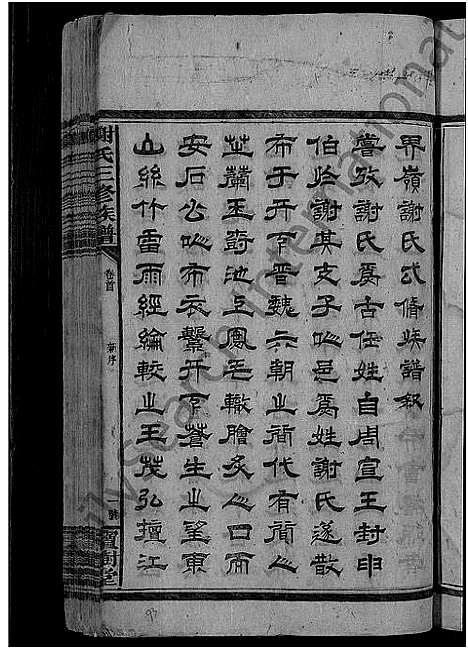 界嶺謝氏弍脩族譜敘
嘗攷謝氏爲古任姓自周宣王封申
伯於謝其支子以邑爲姓謝氏遂散
布于天下晉魏六朝之間代有聞人
芝蘭玉樹池上鳳毛轍膾炙人口而
安石公以布衣繫天下蒼生之望東
山絲竹雷雨經綸較之王茂弘擅江
謝氏三修族譜
卷首
序
寶樹堂
ilySearch International